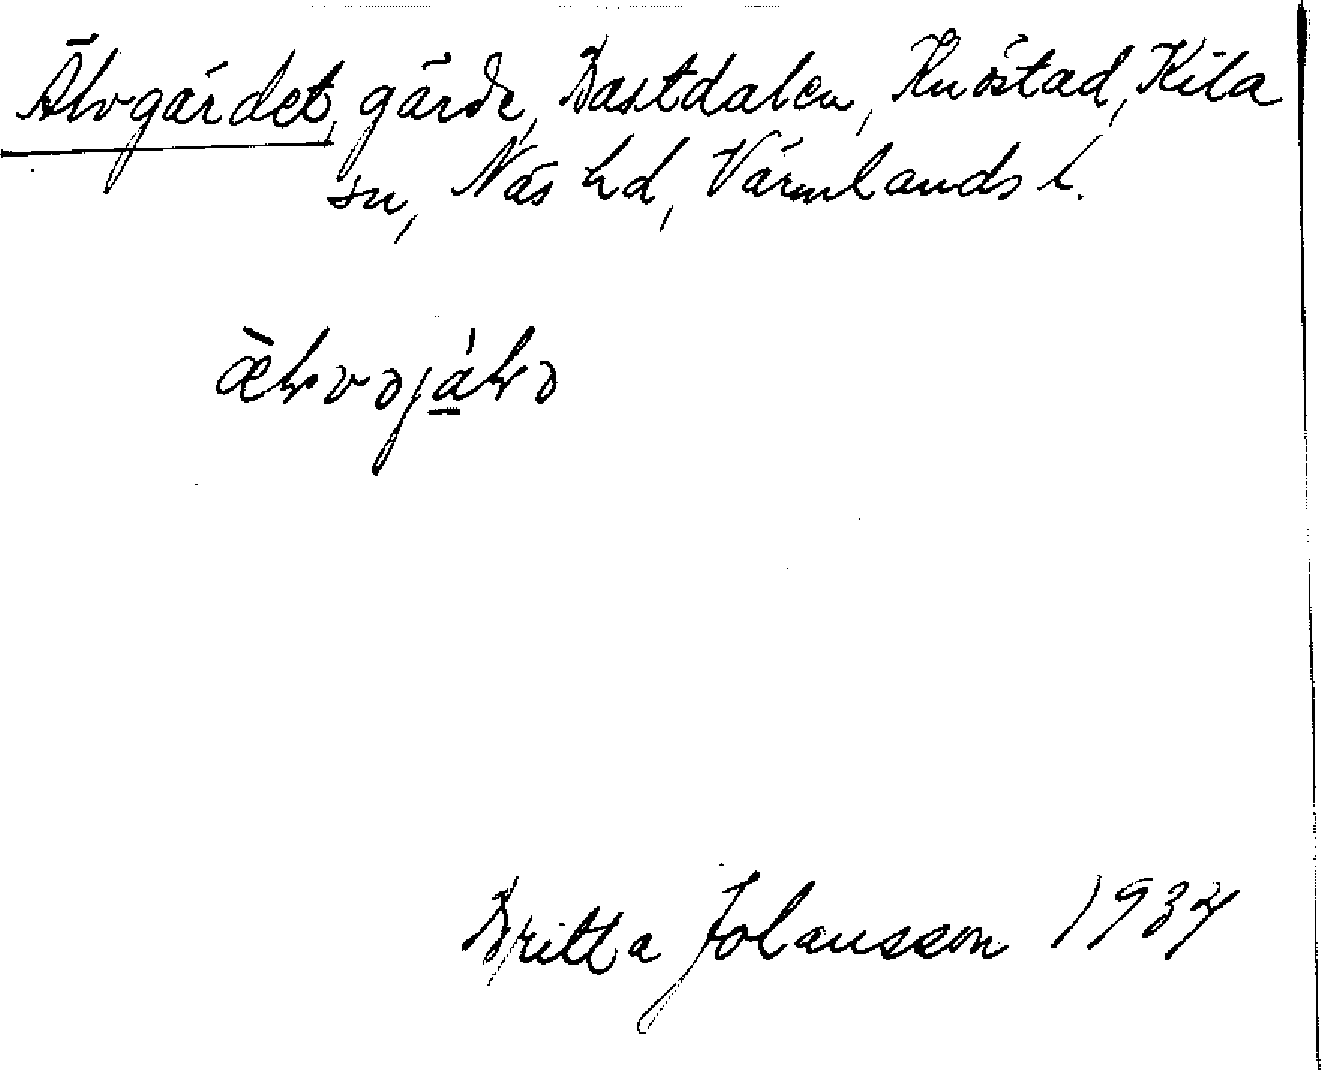 Älvgärdet, gärde, Bastdalen, Knöstad, Kila
sn, Näs hd, Värmlands l.
Britta Johansson 1934